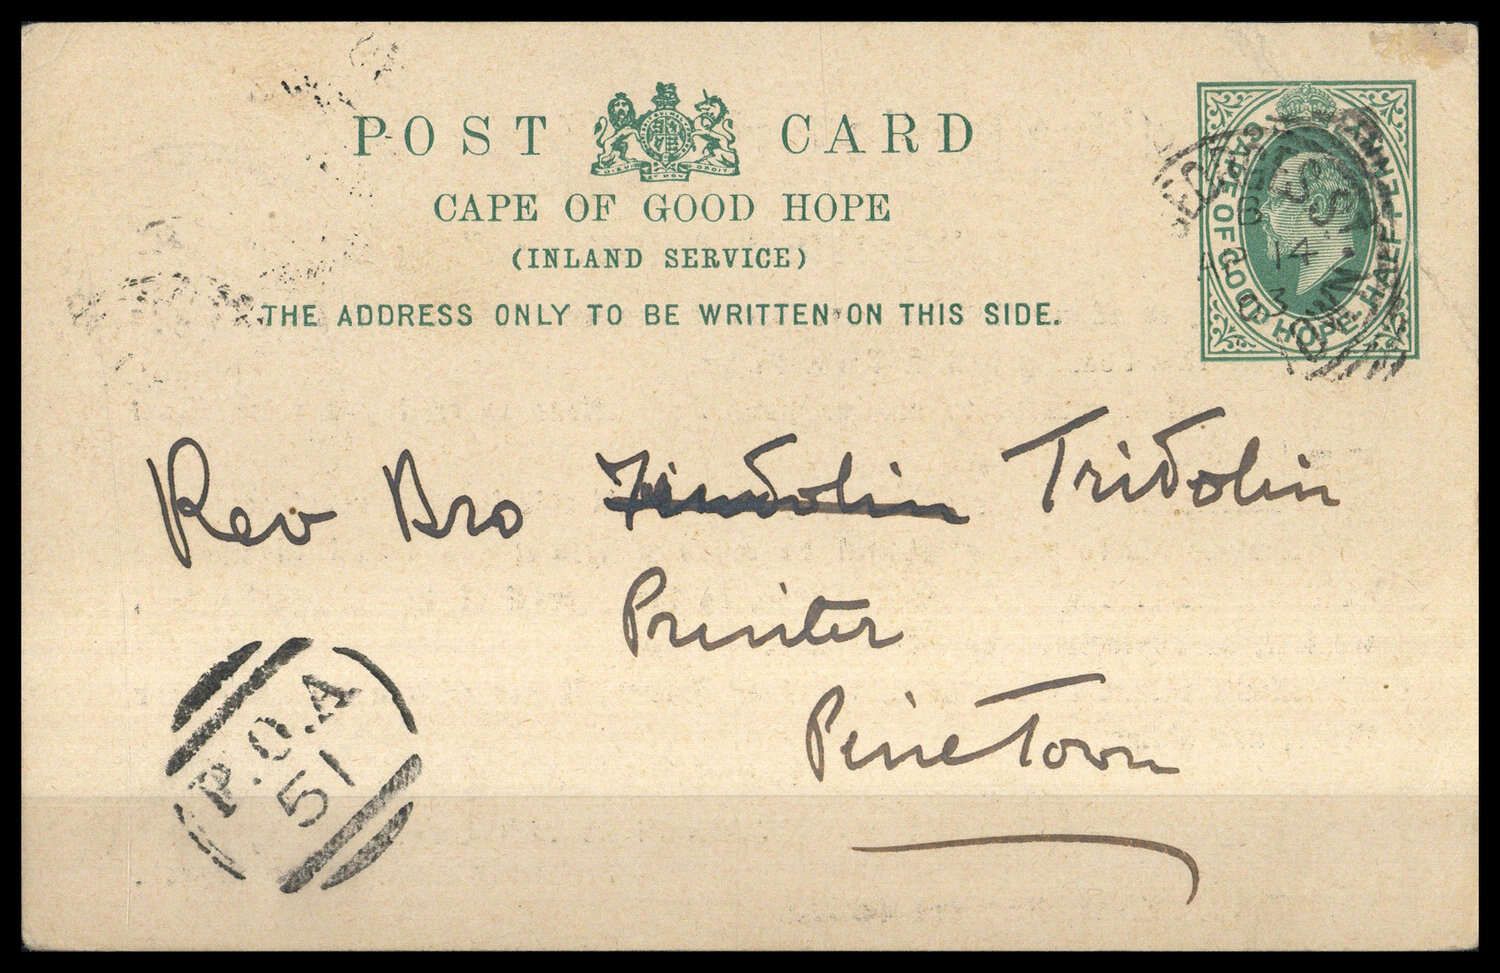 POST CARD
CAPE OF GOOD HOPE
(INLAND SERVICE)
THE ADDRESS ONLY TO BE WRITTEN ON THIS SIDE.
CAPE OF GOOD HOPE. HALF PENNY
14
Rev Bro Findolin Tridolin
Printer
PineTown
P.O.A
51